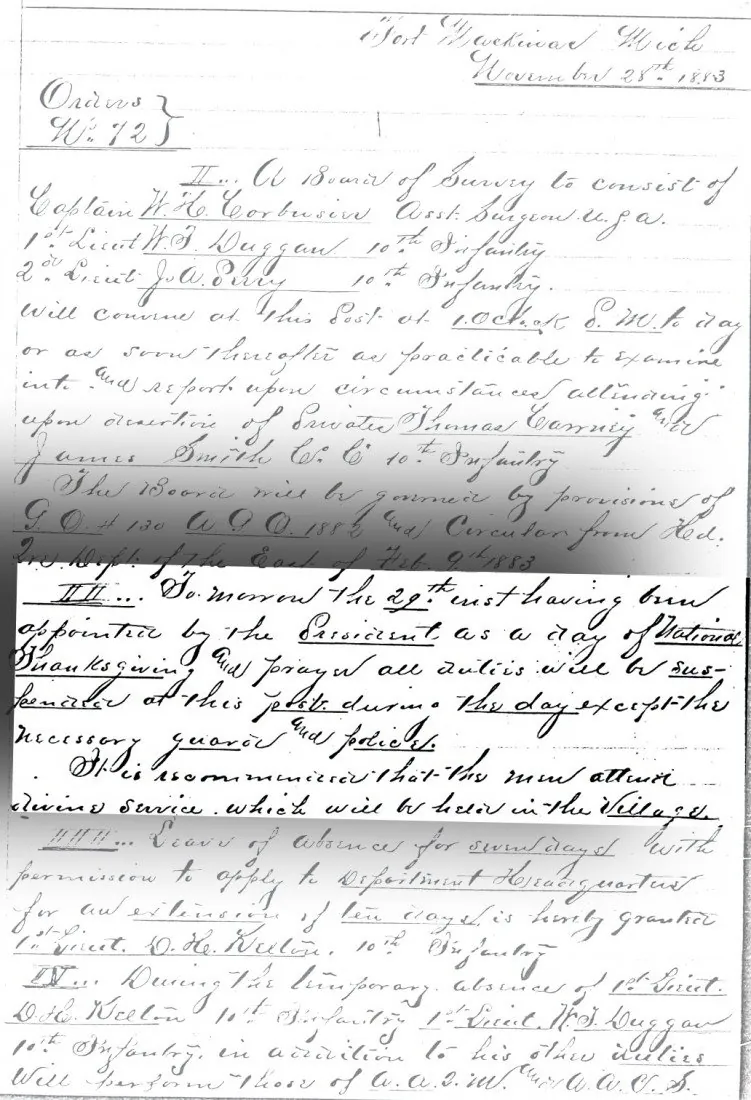 Fort Mackinac Mich
November 28th 1883
Orders }
No 72 }
II... A Board of Survey to consist of
Captain W. H. Corbusier Asst. Surgeon U.S.A.
1st Lieut W. T. Duggan 10th Infantry
2nd Lieut J. A. Perry 10th Infantry.
Will convene at this Post at 1. Oclock P. M. to day
or as soon thereafter as practicable to examine
into and report upon circumstances attending
upon desertion of Privates Thomas Carney and
James Smith C. C 10th Infantry
The Board will be governed by provisions of
G. O. # 130 A G O. 1882 and Circular from Hd.
Qrs. Dept. of the East of Feb. 9th 1883
III... To-morrow the 29th inst having been
appointed by the President as a day of National
Thanksgiving and prayer all duties will be sus-
pended at this post during the day except the
necessary guard and police.
It is recommended that the men attend
divine service which will be held in the Village.
IIII... Leave of absence for seven days with
permission to apply to Department Headquarters
for an extension of ten days. is hereby granted
1st Lieut. D. H. Kelton. 10th Infantry
IV... During the temporary absence of 1st Lieut.
D. H. Kelton 10th Infantry 1st Lieut. W. T. Duggan
10th Infantry. in addition to his other duties
Will perform those of A. A. Q. M. and A. A. C. S.